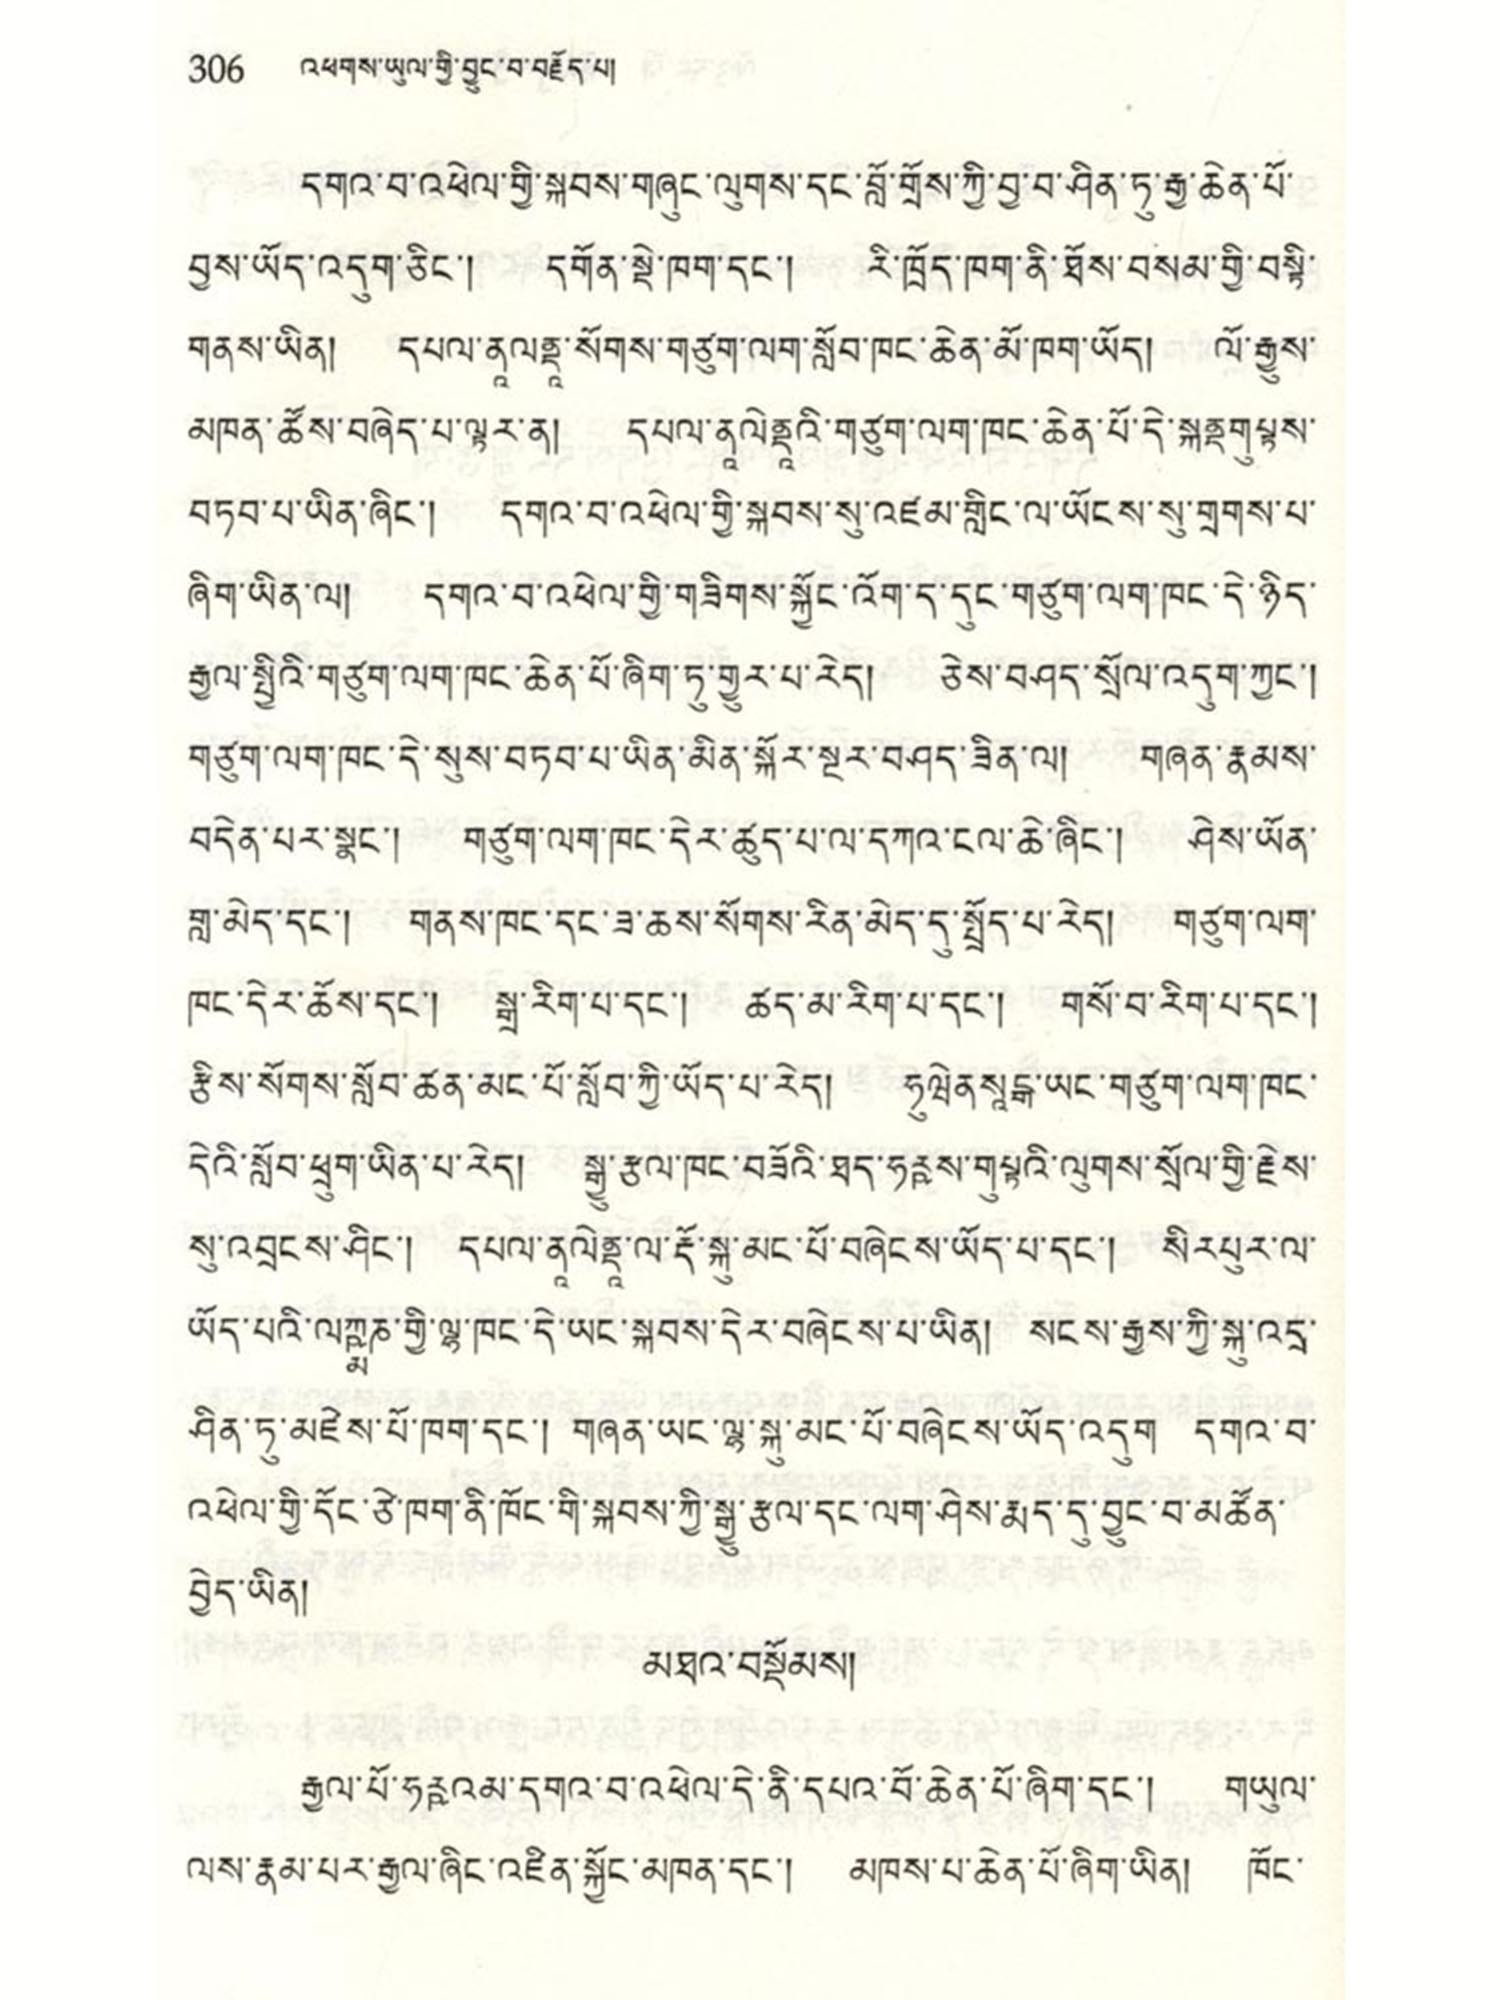 306 འཕགས་ཡུལ་གྱི་བྱུང་བ་བརྗོད་པ།
དགའ་བ་འཕེལ་གྱི་སྐབས་གཞུང་ལུགས་དང་བློ་གྲོས་ཀྱི་བྱ་བ་ཤིན་ཏུ་རྒྱ་ཆེན་པོ་
བྱས་ཡོད་འདུག་ཅིང་། དགོན་སྡེ་ཁག་དང་། རི་ཁྲོད་ཁག་ནི་ཐོས་བསམ་གྱི་བསྟི་
གནས་ཡིན། དཔལ་ནཱལནྡཱ་སོགས་གཙུག་ལག་སློབ་ཁང་ཆེན་མོ་ཁག་ཡོད། ལོ་རྒྱུས་
མཁན་ཚོས་བཞེད་པ་ལྟར་ན། དཔལ་ནཱལེནྡྲཱའི་གཙུག་ལག་ཁང་ཆེན་པོ་དེ་སྐནྡགུཔྟས་
བཏབ་པ་ཡིན་ཞིང་། དགའ་བ་འཕེལ་གྱི་སྐབས་སུ་འཛམ་གླིང་ལ་ཡོངས་སུ་གྲགས་པ་
ཞིག་ཡིན་ལ། དགའ་བ་འཕེལ་གྱི་གཟིགས་སྐྱོང་འོག་ད་དུང་གཙུག་ལག་ཁང་དེ་ཉིད་
རྒྱལ་སྤྱིའི་གཙུག་ལག་ཁང་ཆེན་པོ་ཞིག་ཏུ་གྱུར་པ་རེད། ཅེས་བཤད་སྲོལ་འདུག་ཀྱང་།
གཙུག་ལག་ཁང་དེ་སུས་བཏབ་པ་ཡིན་མིན་སྐོར་སྔར་བཤད་ཟིན་ལ། གཞན་རྣམས་
བདེན་པར་སྣང་། གཙུག་ལག་ཁང་དེར་ཚུད་པ་ལ་དཀའ་ངལ་ཆེ་ཞིང་། ཤེས་ཡོན་
གླ་མེད་དང་། གནས་ཁང་དང་ཟ་ཆས་སོགས་རིན་མེད་དུ་སྤྲོད་པ་རེད། གཙུག་ལག་
ཁང་དེར་ཆོས་དང་། སྒྲ་རིག་པ་དང་། ཚད་མ་རིག་པ་དང་། གསོ་བ་རིག་པ་དང་།
རྩིས་སོགས་སློབ་ཚན་མང་པོ་སློབ་ཀྱི་ཡོད་པ་རེད། ཧུཡེནསཱངྒ་ཡང་གཙུག་ལག་ཁང་
དེའི་སློབ་ཕྲུག་ཡིན་པ་རེད། སྒྱུ་རྩལ་ཁང་བཟོའི་ཐད་ཧརྵས་གུཔྟའི་ལུགས་སྲོལ་གྱི་རྗེས་
སུ་འབྲངས་ཤིང་། དཔལ་ནཱལེནྡྲཱ་ལ་རྡོ་སྐུ་མང་པོ་བཞེངས་ཡོད་པ་དང་། སིརཔུར་ལ་
ཡོད་པའི་ལཀྵྨཎ་གྱི་ལྷ་ཁང་དེ་ཡང་སྐབས་དེར་བཞེངས་པ་ཡིན། སངས་རྒྱས་ཀྱི་སྐུ་འདྲ་
ཤིན་ཏུ་མཛེས་པོ་ཁག་དང་། གཞན་ཡང་ལྷ་སྐུ་མང་པོ་བཞེངས་ཡོད་འདུག དགའ་བ་
འཕེལ་གྱི་དོང་ཙེ་ཁག་ནི་ཁོང་གི་སྐབས་ཀྱི་སྒྱུ་རྩལ་དང་ལག་ཤེས་རྨད་དུ་བྱུང་བ་མཚོན་
བྱེད་ཡིན།
མཐའ་བསྡོམས།
རྒྱལ་པོ་ཧརྵའམ་དགའ་བ་འཕེལ་དེ་ནི་དཔའ་བོ་ཆེན་པོ་ཞིག་དང་། གཡུལ་
ལས་རྣམ་པར་རྒྱལ་ཞིང་འཛིན་སྐྱོང་མཁན་དང་། མཁས་པ་ཆེན་པོ་ཞིག་ཡིན། ཁོང་